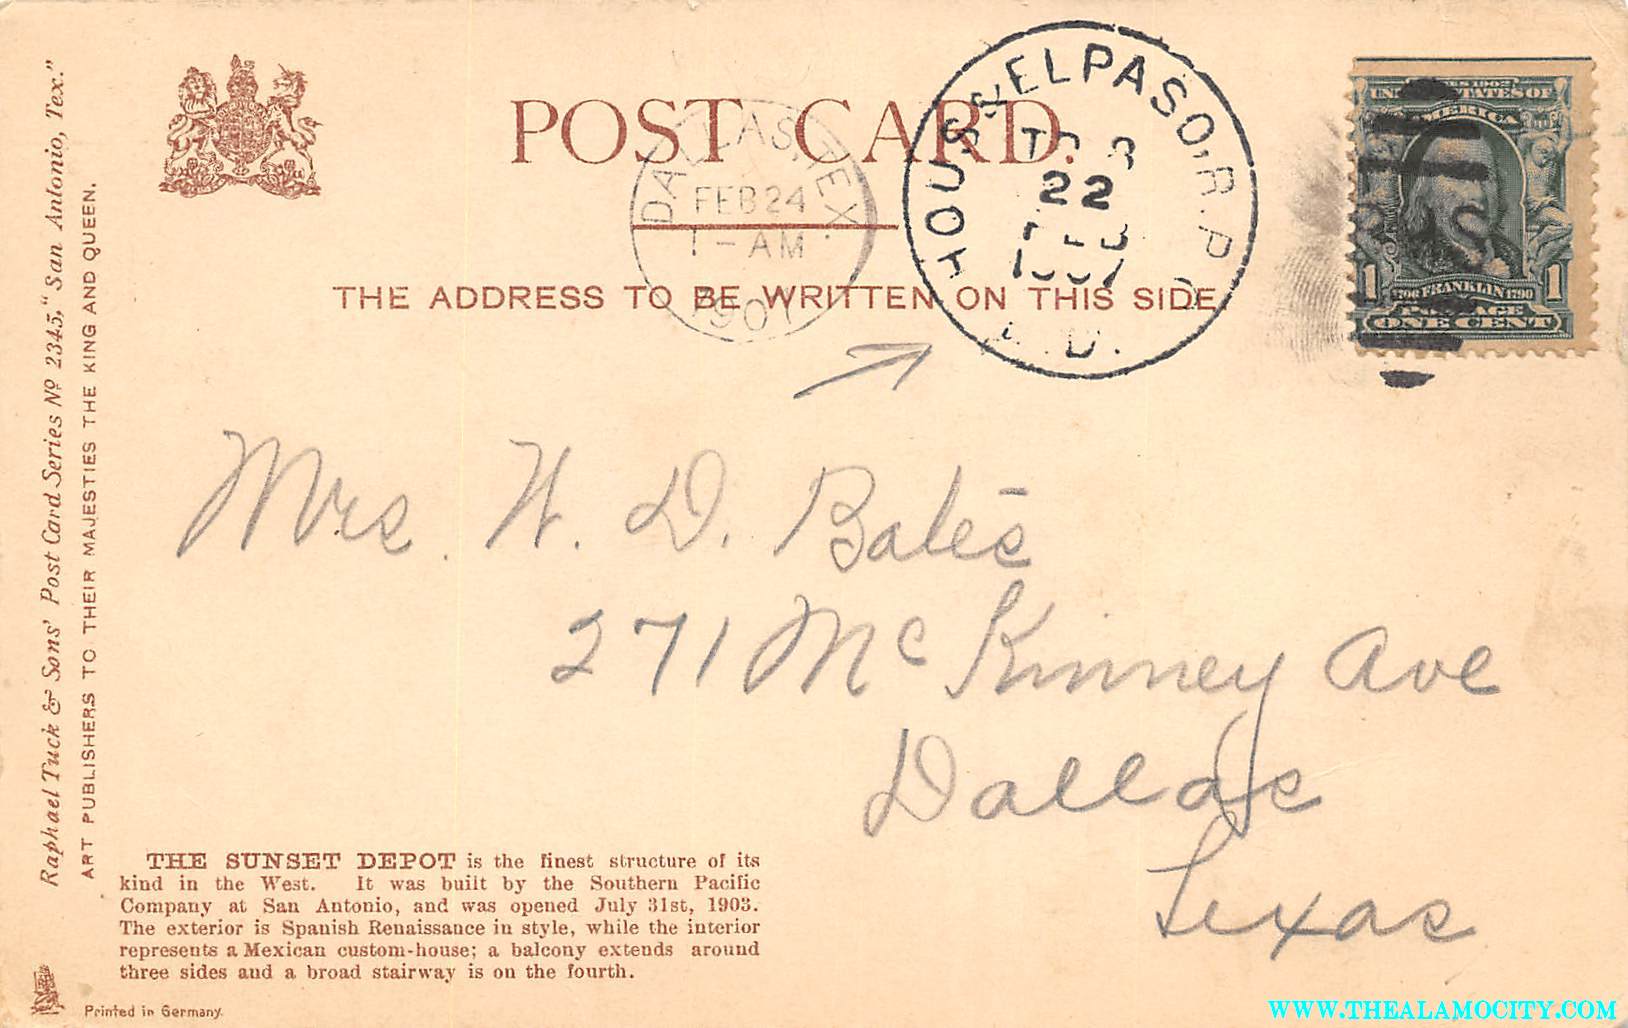 Raphael Tuck & Sons' Post Card Series Nº 2345, "San Antonio, Tex."
ART PUBLISHERS TO THEIR MAJESTIES THE KING AND QUEEN.
POST CARD.
DALLAS, TEX.
FEB 24
1-AM
1907
HOUS. & EL PASO, R.P.O.
22
FEB
1907
UNITED STATES OF
AMERICA
1 1706 FRANKLIN 1790 1
POSTAGE
ONE CENT
THE ADDRESS TO BE WRITTEN ON THIS SIDE
Mrs. W. D. Bates
271 McKinney Ave
Dallas
Texas
THE SUNSET DEPOT is the finest structure of its
kind in the West. It was built by the Southern Pacific
Company at San Antonio, and was opened July 31st, 1903.
The exterior is Spanish Renaissance in style, while the interior
represents a Mexican custom-house; a balcony extends around
three sides and a broad stairway is on the fourth.
Printed in Germany.
WWW.THEALAMOCITY.COM